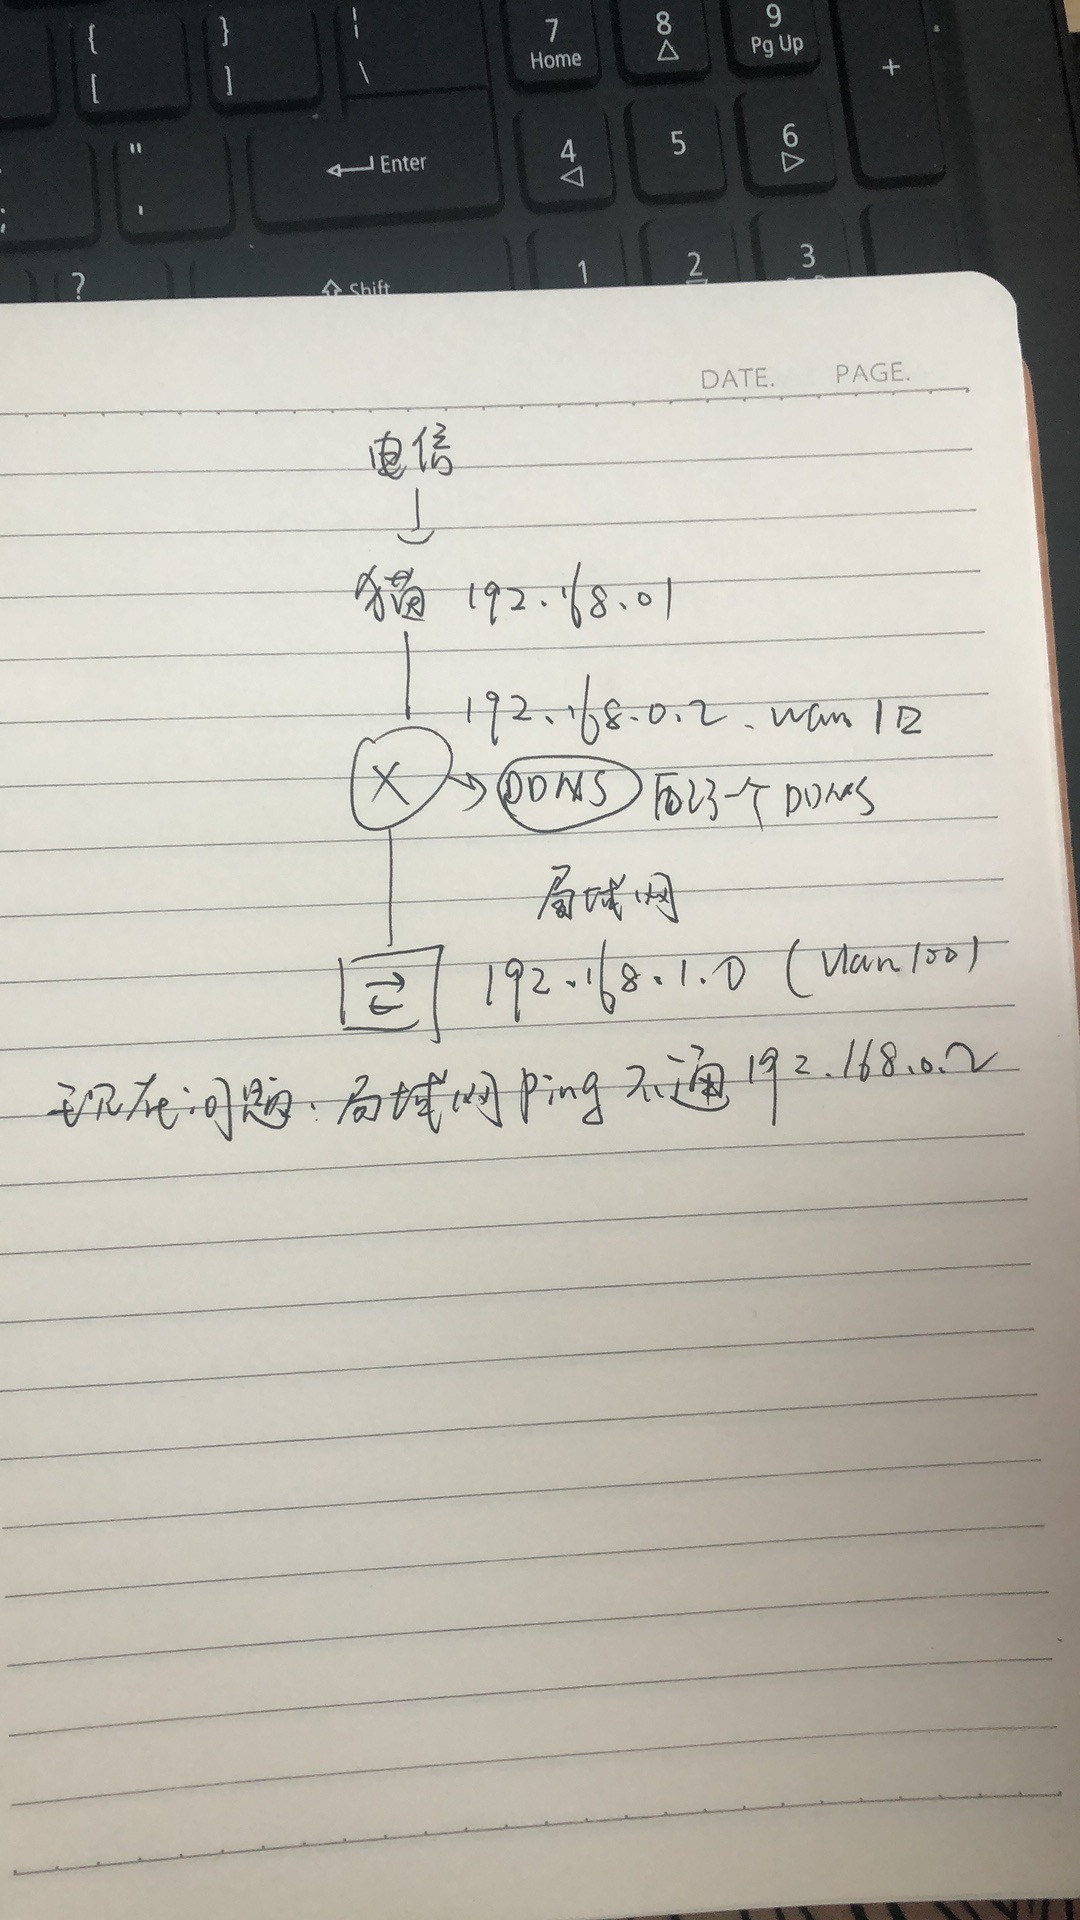 { } ¦ 7 8 9
[ ] \ Home Pg Up +
" 4 5 6
; ' Enter
? Shift 1 2 3
DATE. PAGE.
电信
猫 192.168.01
192.168.0.2. wan 1口
X DDNS 配了一个 DDNS
局域网
192.168.1.0 (Vlan100)
现在问题: 局域网 ping 不通 192.168.0.2